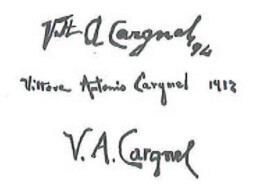 V.tt A Cargnel 94
Vittore Antonio Cargnel 1912
V. A. Cargnel